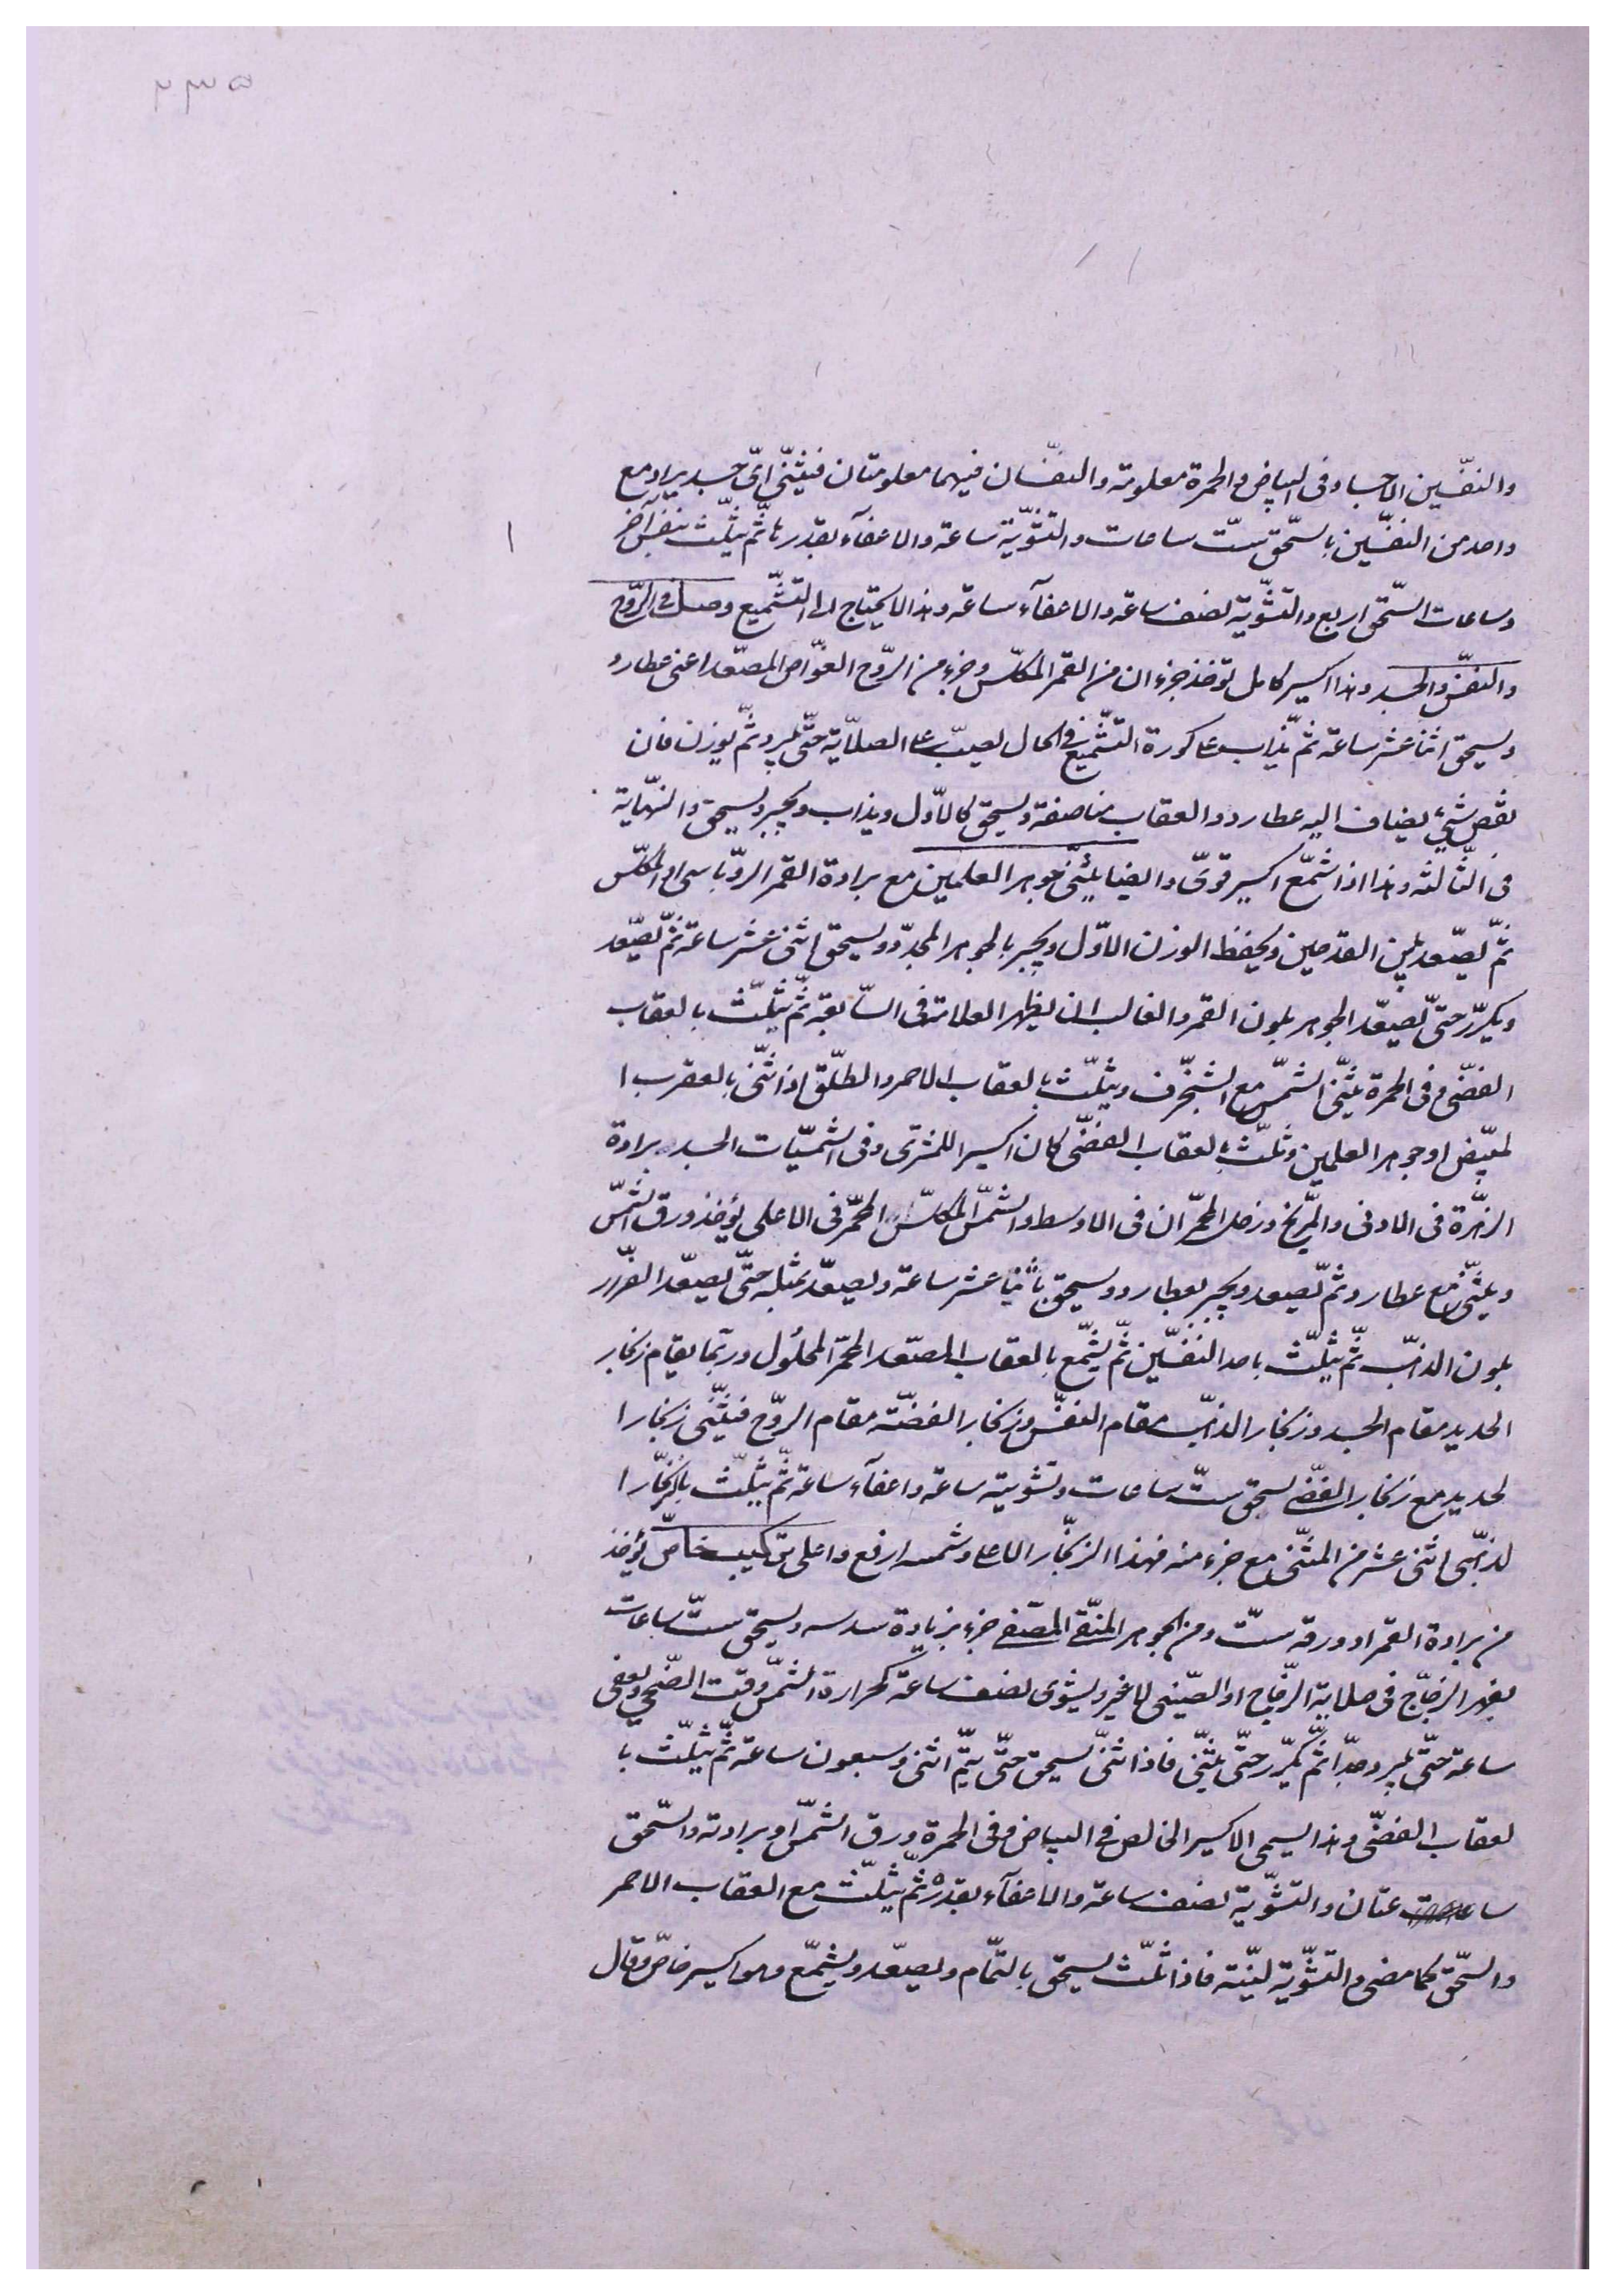 والنفّسين الاجساد فى البياض والحمرة معلومته والنفسان فيهما معلومتان فيثنّى اىّ جسد يراد مع
واحد من النفسّين بالسّحق ستّ ساعات والتشّوّية ساعة والاعفآء بقدرها ثمّ يثلّث بنفس آخر
وساعات السّحق اربع والتشّوية نصف ساعة والاعفآء ساعة وهذا لا يحتاج الى التشّميع وصل فى الرّوح
والنفسّ والجسد وهذا اكسير كامل تؤخذ جزءان من القمر المكلّس وجزء من الرّوح الغوّاص المصعّد اعنى عطارد
ويسحق اثنا عشر ساعة ثمّ يذاب على كورة التشّميع فى الحال يصبّ على الصلاّية حتّى يبرد ثّم يوزن فان
نقص شئ يضاف اليه عطارد والعقاب مناصفة ويسحق كالاوّل ويذاب ويجبر ويسحق والنهّاية
فى الثّالثه وهذا اذا شمّع اكسير قوىّ وايضا يثنّى جوهر العلمين مع برادة القمر الروّباسى او المكلّس
ثمّ يصعّد بين القدحين ويحفظ الوزن الاوّل ويجبر بالجوهر المجدّد ويسحق اثنى عشر ساعة ثمّ يصعّد
ويكرّر حتّى يصعّد الجوهر بلون القمر والغالب ان يظهر العلامة فى السّابعة ثّم يثلّث بالعقاب
الفضّى وفى الحمرة يثنّى الشمسّ مع الشنجّرف ويثلّث بالعقاب الاحمر والطلّق اذا ثنّى بالعقرب ا
لمبيّض او جوهر العلمين وثلّث بالعقاب الفضّى كان اكسيرا للمشترى وفى الشمسيّات الجسد برادة
الزهرّة فى الادنى والمرّيخ وزحل المحمّران فى الاوسط والشمسّ المكلسّ المحمّر فى الاعلى يؤخذ ورق الشمسّ
ويثنّى مع عطارد ثمّ يصعد ويجبر بعطارد ويسحق باثنا عشر ساعة ويصعّد بمثله حتّى يصعّد الفرّار
بلون الذهبّ ثّم يثلّث باحد النفسّين ثّم يشمّع بالعقاب المصعّد المحمّر المحلول وربّما يقام زنجار
الحديد مقام الجسد وزنجار الذهبّ مقام النفسّ وزنجار الفضّة مقام الروّح فيثنّى زنجار ا
لحديد مع زنجار الفضّة بسحق ستّ ساعات وتشوية ساعة واعفآء ساعة ثّم يثلّث بالزنجّار ا
لذهبّى اثنى عشر من المثنّى مع جزء منه فهذا الزنجّار الاعلى وشمسه ارفع واعلى تركيب خاصّ يؤخذ
من برادة القمر او ورقه ستّ ومن الجوهر المنقّى المصّفى جزء بزيادة سدسه ويسحق ستّ ساعات
بفهر الزجّاج فى صلاية الزّجاج او الصّينى لا غير ويشوى نصف ساعة كحرارة الشمسّ وقت الضّحى ويعفى
ساعة حتّى يبرد جدّا ثّم يكرّر حتّى يثنّى فاذا ثنّى يسحق حتّى يتّم اثنى وسبعون ساعة ثّم يثلّث با
لعقاب الفضّى وهذا يسمى الاكسير الخالص فى البياض وفى الحمرة ورق الشمسّ او برادته والسّحق
ساعتان والتشّوية نصف ساعة والاعفآء بقدره ثّم يثلّث مع العقاب الاحمر
والسّحق كما مضى والتشّوية لينّة فاذا ثلّث يسحق بالتمّام ويصعّد ويشمّع وهو اكسير خاصّ وقال